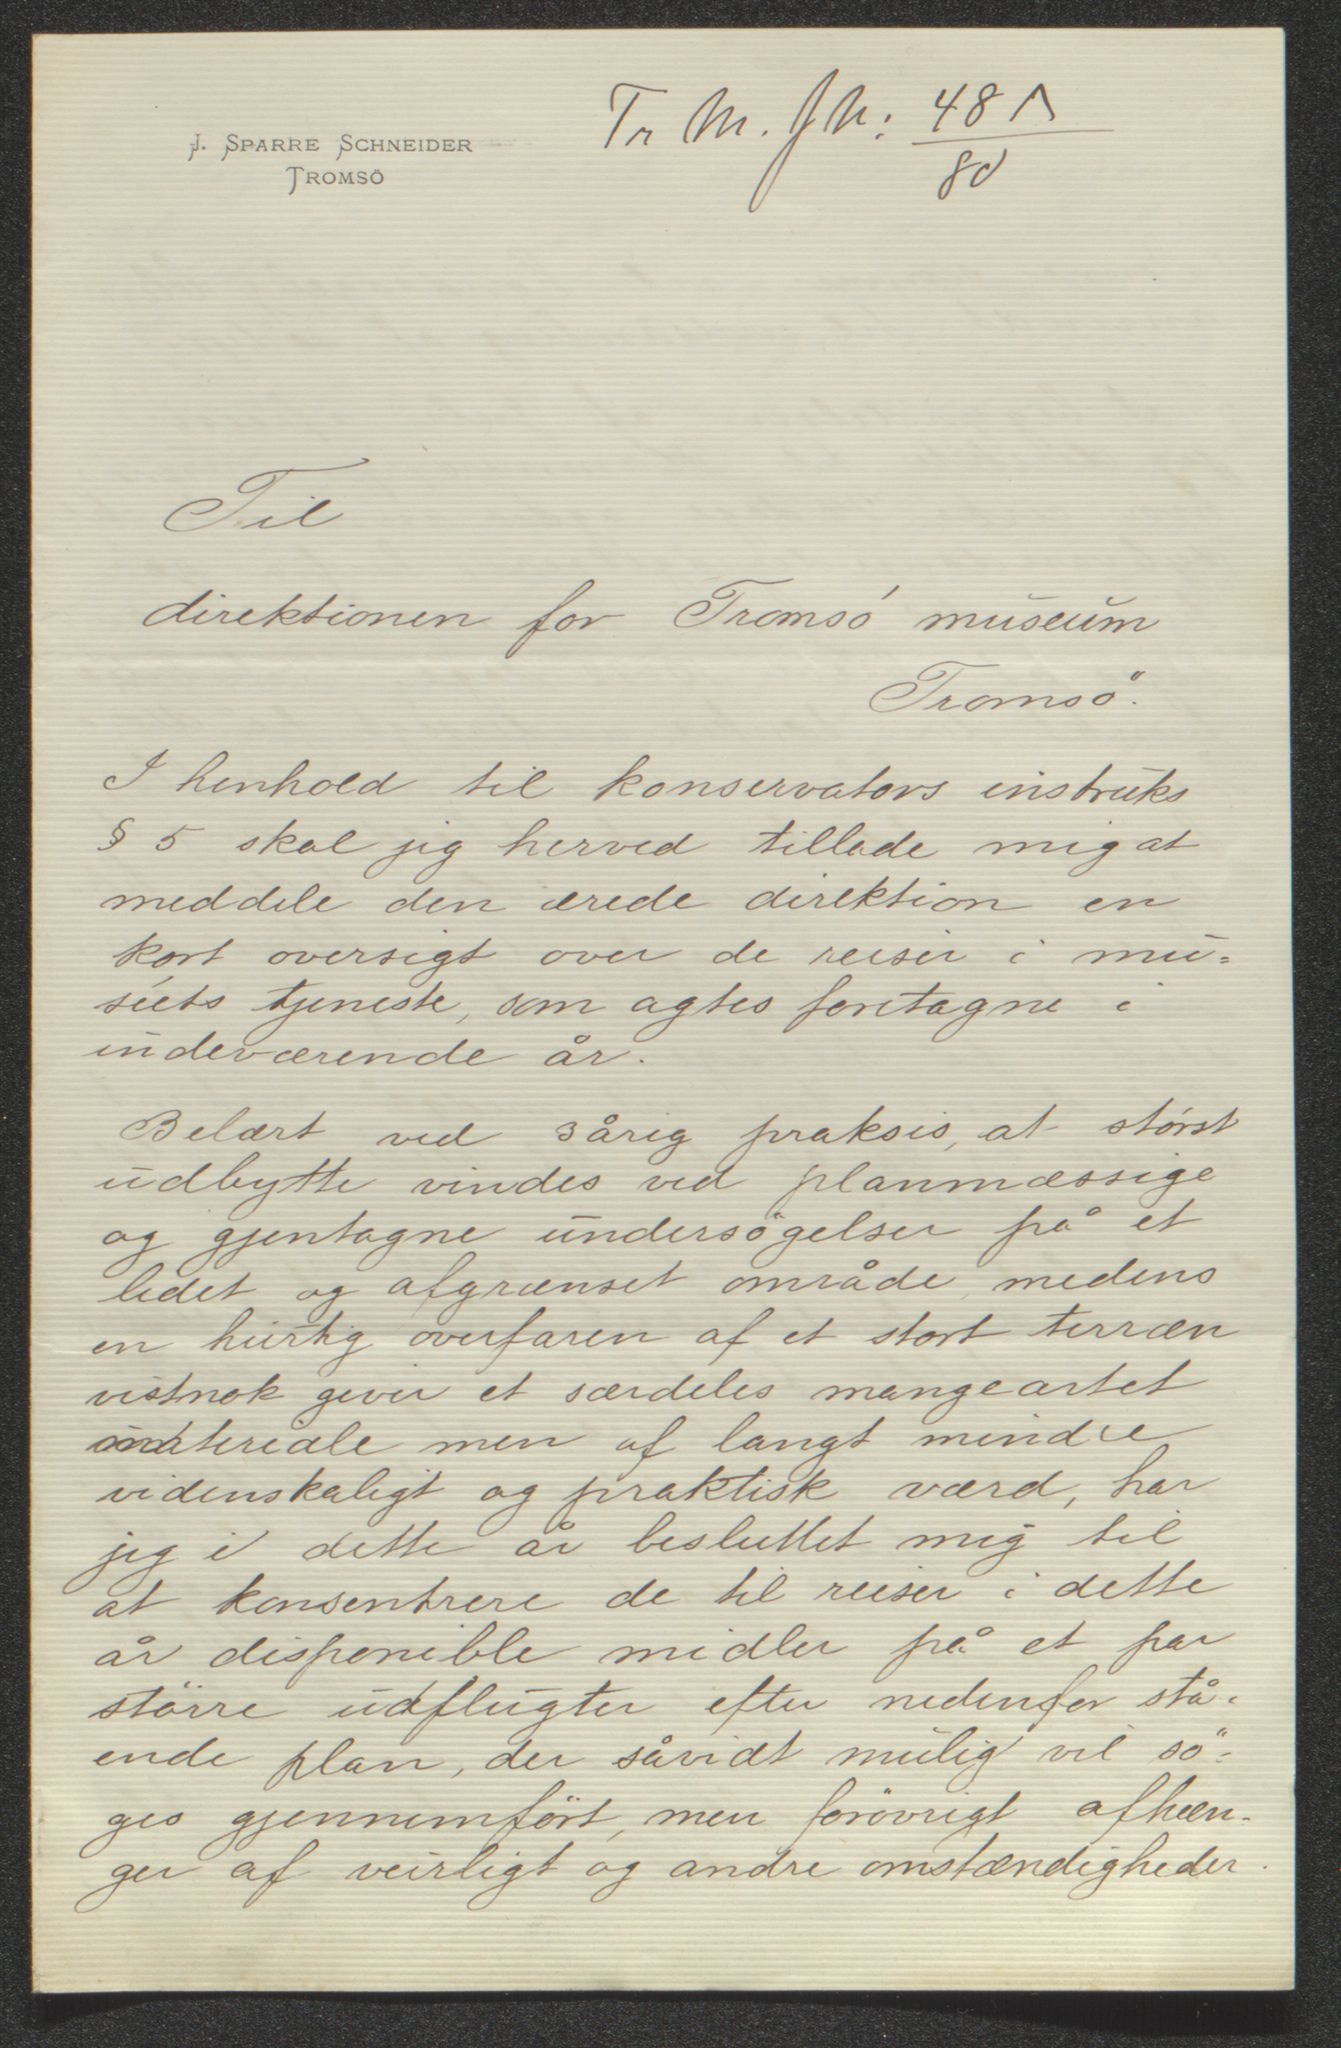 J. SPARRE SCHNEIDER
TROMSÖ
Tr M. J N:
80
Til
direktionen for Tromsö museum
Tromsö.
I henhold til konservators instruks
§ 5 skal jig herved tillade mig at
meddele den ærede direktion en
kort oversigt over de reiser i mu=
séets tjeneste, som agtes foretagne i
indeværende år.
Belært ved 3årig praksis, at störst
udbytte vindes ved planmæssige
og gjentagne undersögelser på et
lidet og afgrænset område, medens
en hurtig overfaren af et stort terræn
vistnok giver et særdeles mangeartet
materiale men af langt mindre
videnskaligt og praktisk værd, har
jig i dette år besluttet mig til
at konsentrere de til reiser i dette
år disponible midler på et par
större udflugter efter nedenfor stå-
ende plan, der såvidt mulig vil sö-
ges gjennemfört, men forövrigt afhæn-
ger af veirligt og andre omstændigheder.